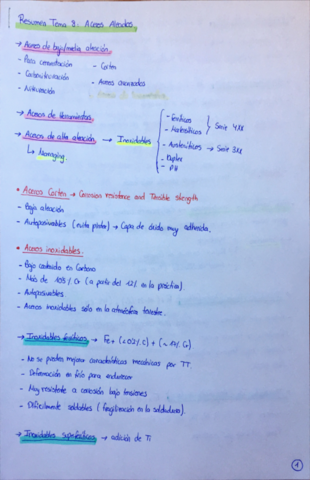 Resumen Tema 8: Aceros Aleados.
→ Aceros de baja/media aleación.
- Para cementación - Corten
- Carbonitruración - Aceros avanzados
- Nitruración
→ Aceros de Herramientas.
→ Aceros de alta aleación → Inoxidables
↳ Maraging.
- Ferríticos
- Martensíticos } Serie 4XX
- Austeníticos → Serie 3XX
- Duplex
- PH
• Aceros Corten → Corrosion resistence and Tensible strength
- Baja aleación
- Autopasivables (evita pintar) → Capa de óxido muy adherida.
• Aceros inoxidables.
- Bajo contenido en Carbono
- Más de 10,5% Cr (a partir del 12% en la práctica)
- Autopasivables
- Aceros inoxidables sólo en la atmósfera terrestre.
→ Inoxidables ferríticos → Fe + (<0,1% C) + (~ 17% Cr)
- No se pueden mejorar características mecánicas por TT.
- Deformación en frío para endurecer
- Muy resistente a corrosión bajo tensiones
- Difícilmente soldables (fragilización en la soldadura).
→ Inoxidables superferríticos → adición de Ti
1